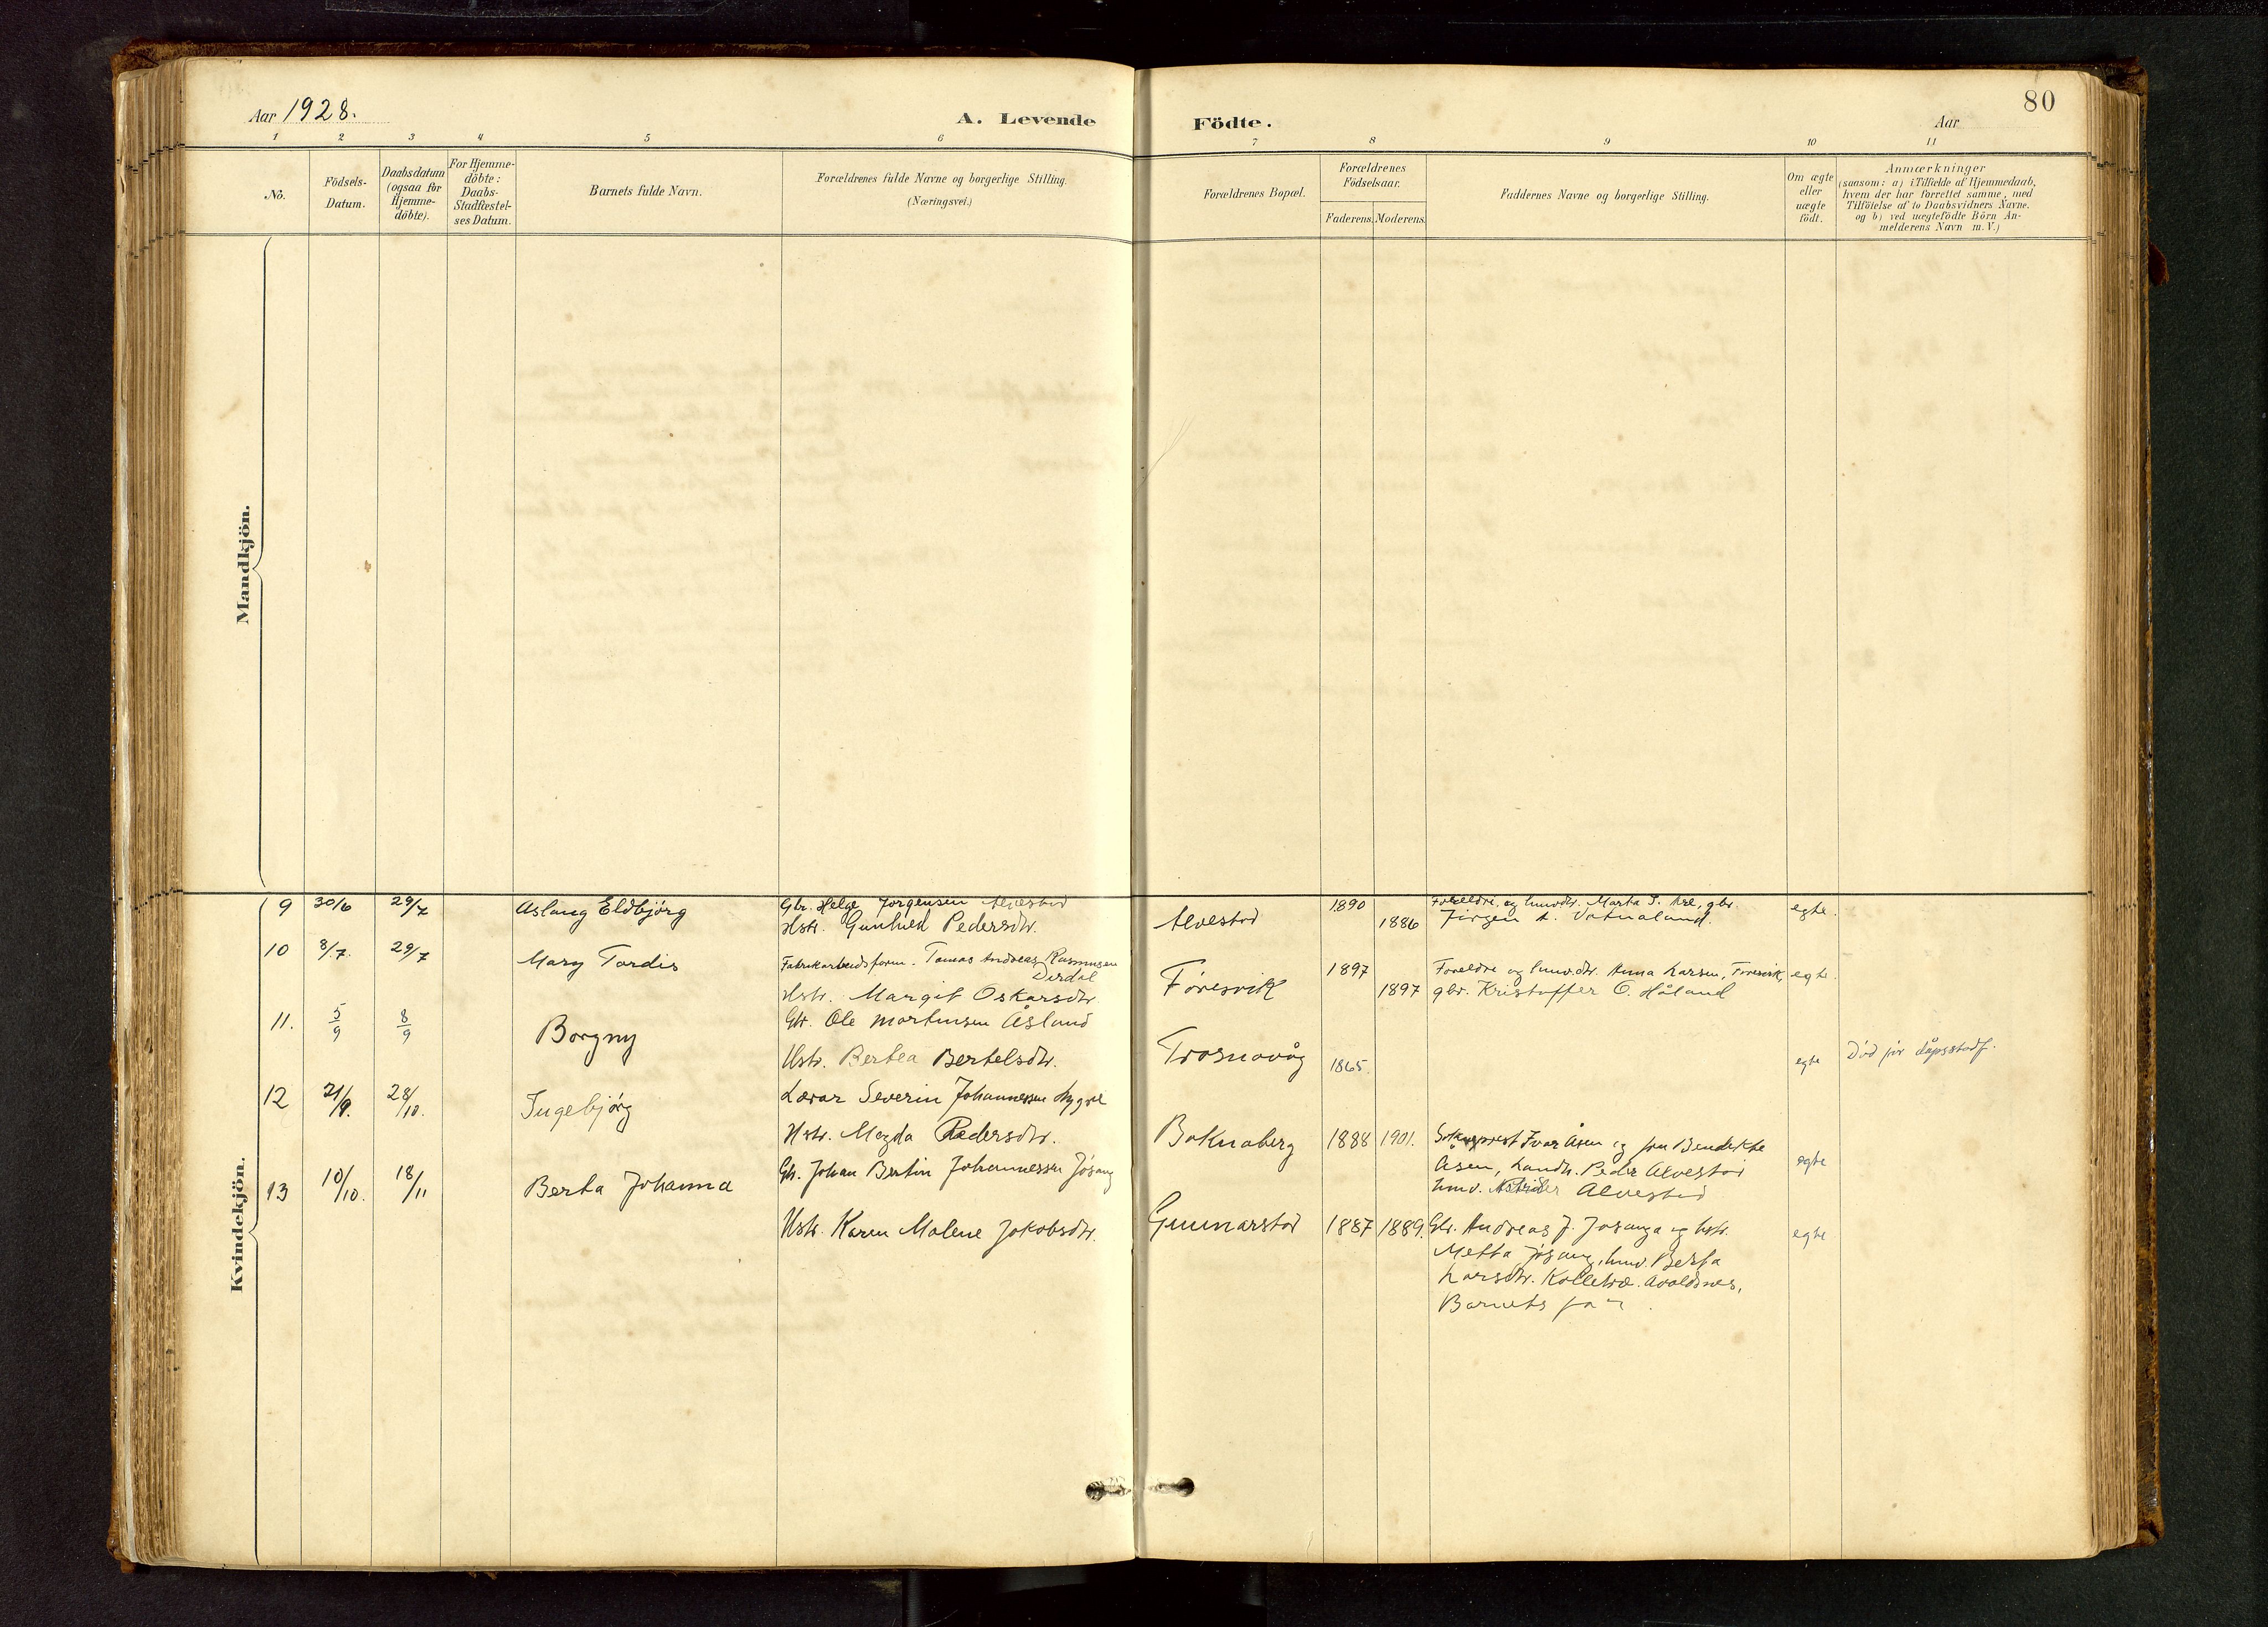 Aar 1928.
A. Levende Födte.
Aar
80
1 2 3 4 5 6 7 8 9 10 11
No.
Födsels-
Datum.
Daabsdatum
(ogsaa for
Hjemme-
döbte).
For Hjemme-
döbte:
Daabs-
Stadfæstel-
ses Datum.
Barnets fulde Navn.
Forældrenes fulde Navne og borgerlige Stilling.
(Næringsvei.)
Forældrenes Bopæl.
Forældrenes
Födselsaar.
Faderens. Moderens.
Faddernes Navne og borgerlige Stilling.
Om ægte
eller
uægte
födt.
Anmærkninger
(saasom: a) i Tilfælde af Hjemmedaab,
hvem der har forrettet samme, med
Tilföielse af to Daabsvidners Navne.
og b) ved uægtefödte Börn An-
melderens Navn m. V.)
Mandkjön.
Kvindekjön.
9 30/6 29/7 Aslaug Eldbjørg Gbr. Helge Jørgensen Alvestad
Hstr. Gunhild Pedersdtr. Alvestad 1890 1886
Foreldre, og hmvdtr. Marta S. Are, gbr.
Jørgen A. Vatnaland. egte.
10 8/7. 29/7 Mary Tordis Fabrikarbeidsform. Tomas Andreas Rasmusen
Dirdal
Hstr. Margit Oskarsdtr. Føresvik 1897 1897
Foreldre og hmv.dtr. Anna Larsen, Føresvik,
gbr. Kristoffer O. Håland egte.
11. 5/9 8/9 Borgny Gbr. Ole Martinsen Åsland
Hstr. Bertea Bertelsdtr. Trosnavåg 1865. egte Død før dåpsstadf.
12 21/9. 28/10. Ingebjørg Lærar Severin Johannessen Hygre
Hstr. Magda Pedersdtr. Boknaberg 1888 1901.
Sokneprest Ivar Åsen og fru Bendikte
Åsen, Landh. Peder Alvestad
hmv. Alvestad egte
13 10/10. 18/11 Berta Johanna Gbr. Johan Bertin Johannessen Jøsang
Hstr. Karen Malene Jakobsdtr. Gunnarstad 1887 1889.
Gbr. Andreas J. Jøsang og hstr.
Metta Jøsang, hmv. Berta
Larsdtr. Kolletræ. Avaldsnes,
Barnets far. egte